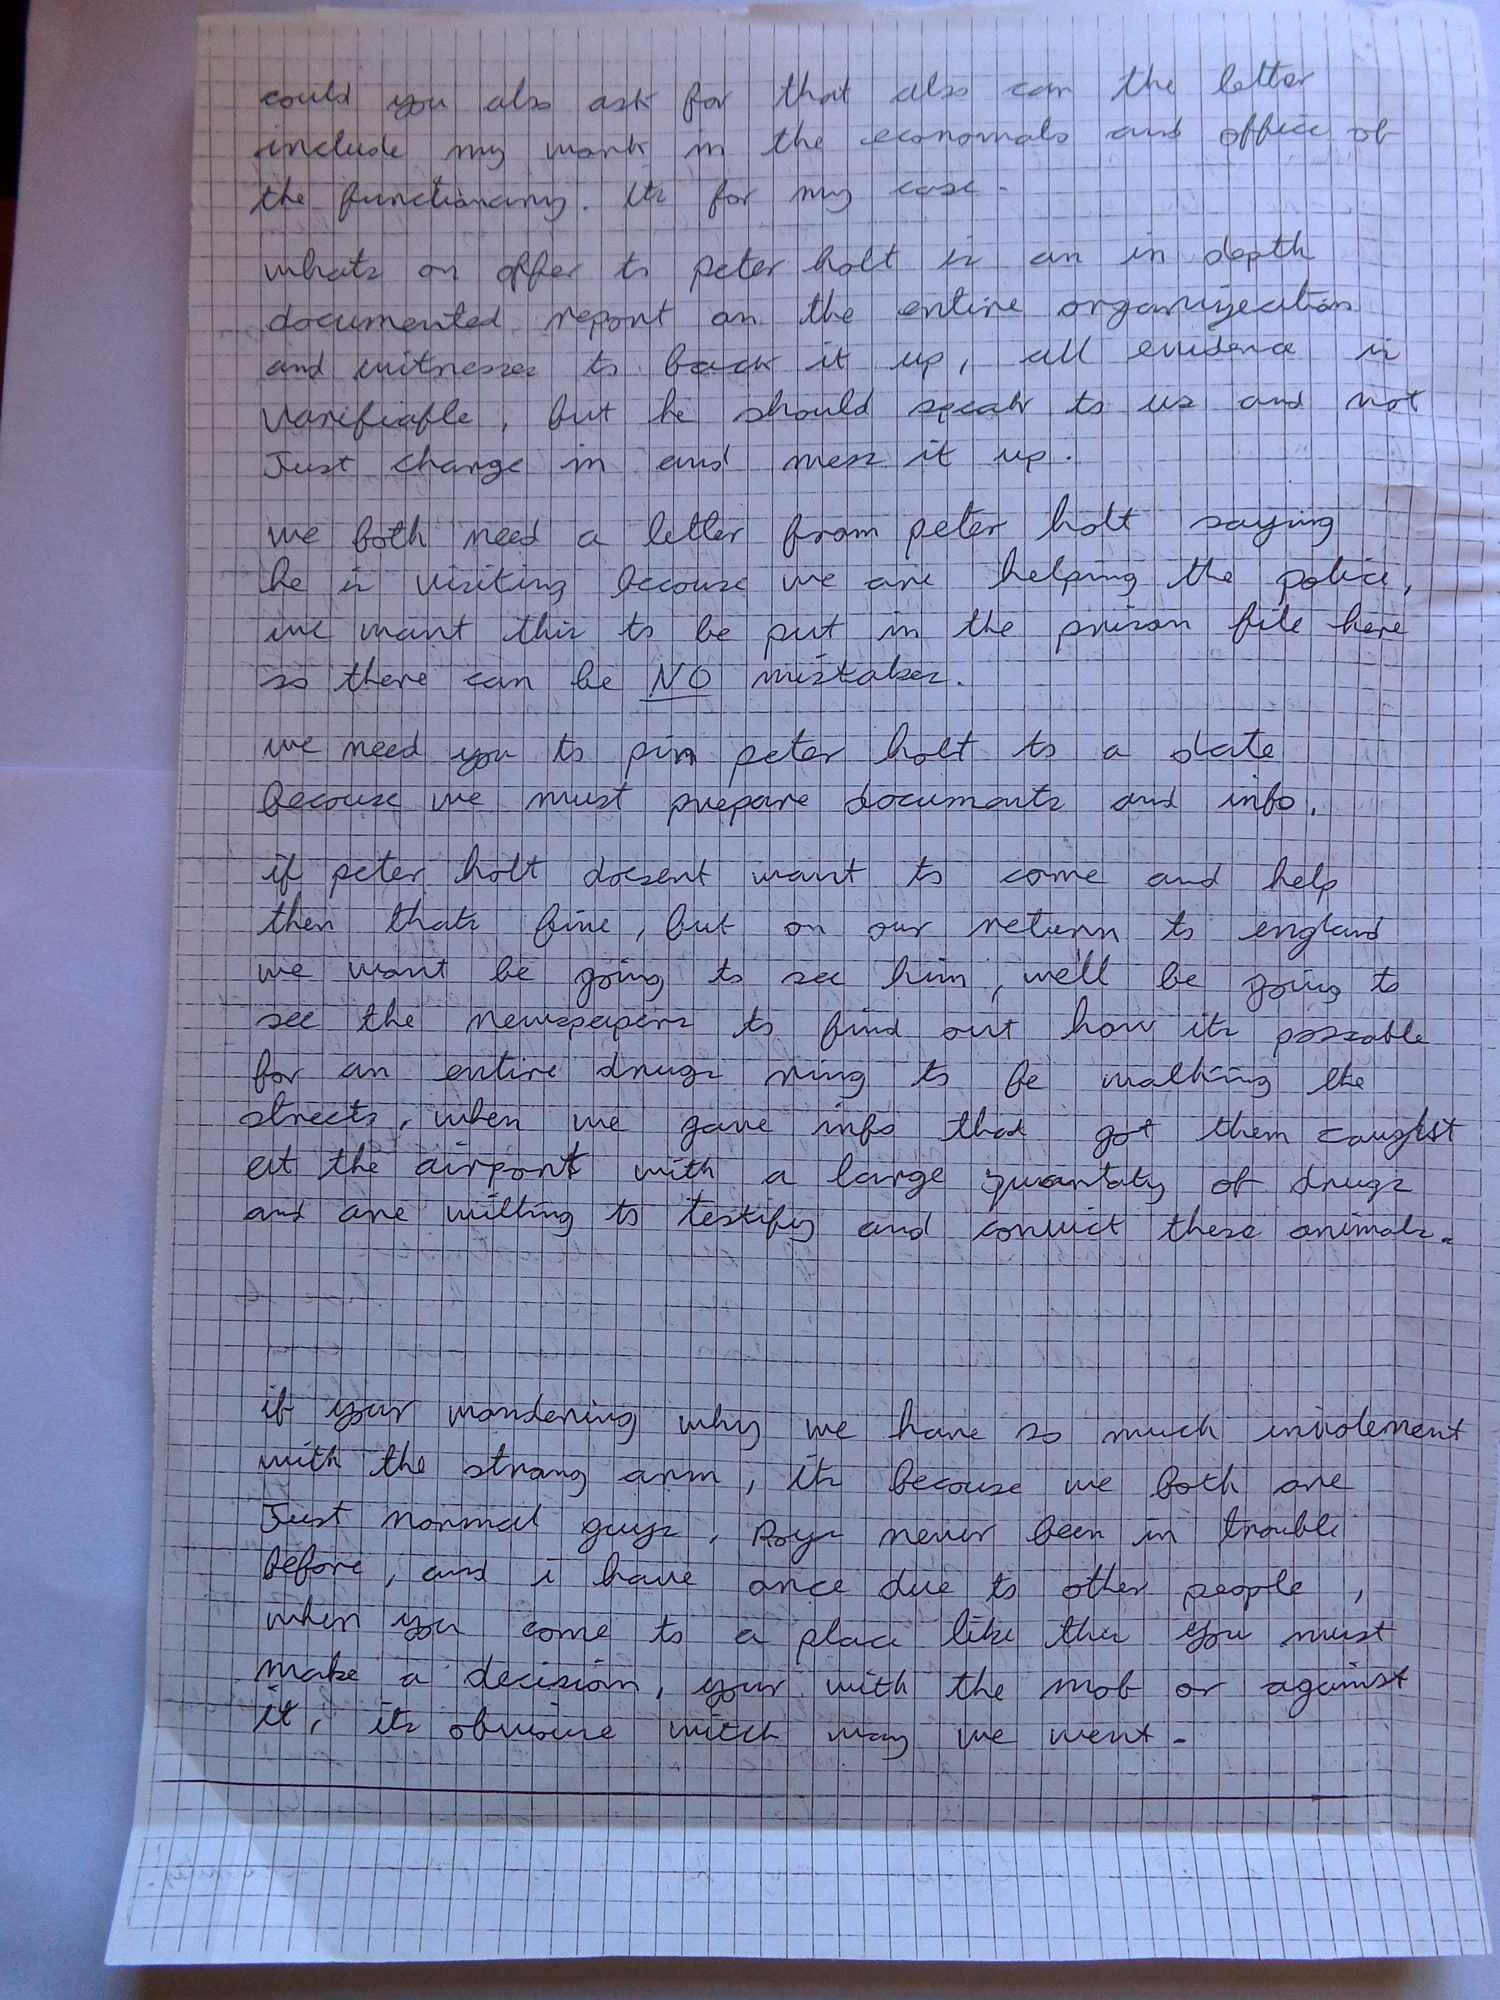 could you also ask for that also can the letter
include my work in the economato and office of
the functionary. its for my case.
whats on offer to peter holt is an in depth
documented report on the entire organizeation
and witnesses to back it up, all evidence is
varifiable, but he should speak to us and not
Just charge in and mess it up.
we both need a letter from peter holt saying
he is visiting becouse we are helping the police,
we want this to be put in the prison file here
so there can be NO mistakes.
we need you to pin peter holt to a date
becouse we must prepare documents and info.
if peter holt doesent want to come and help
then thats fine, but on our return to england
we wont be going to see him, we'll be going to
see the newspapers to find out how its possable
for an entire drugs ring to be walking the
streets, when we gave info that got them caught
at the airport with a large quantaty of drugs
and are willing to testify and convict these animals.
if your wondering why we have so much involement
with the strong arm, its becouse we both are
Just normal guys, Roys never been in trouble
before, and i have once due to other people,
when you come to a place like this you must
make a decision, your with the mob or against
it, its obvious witch way we went.